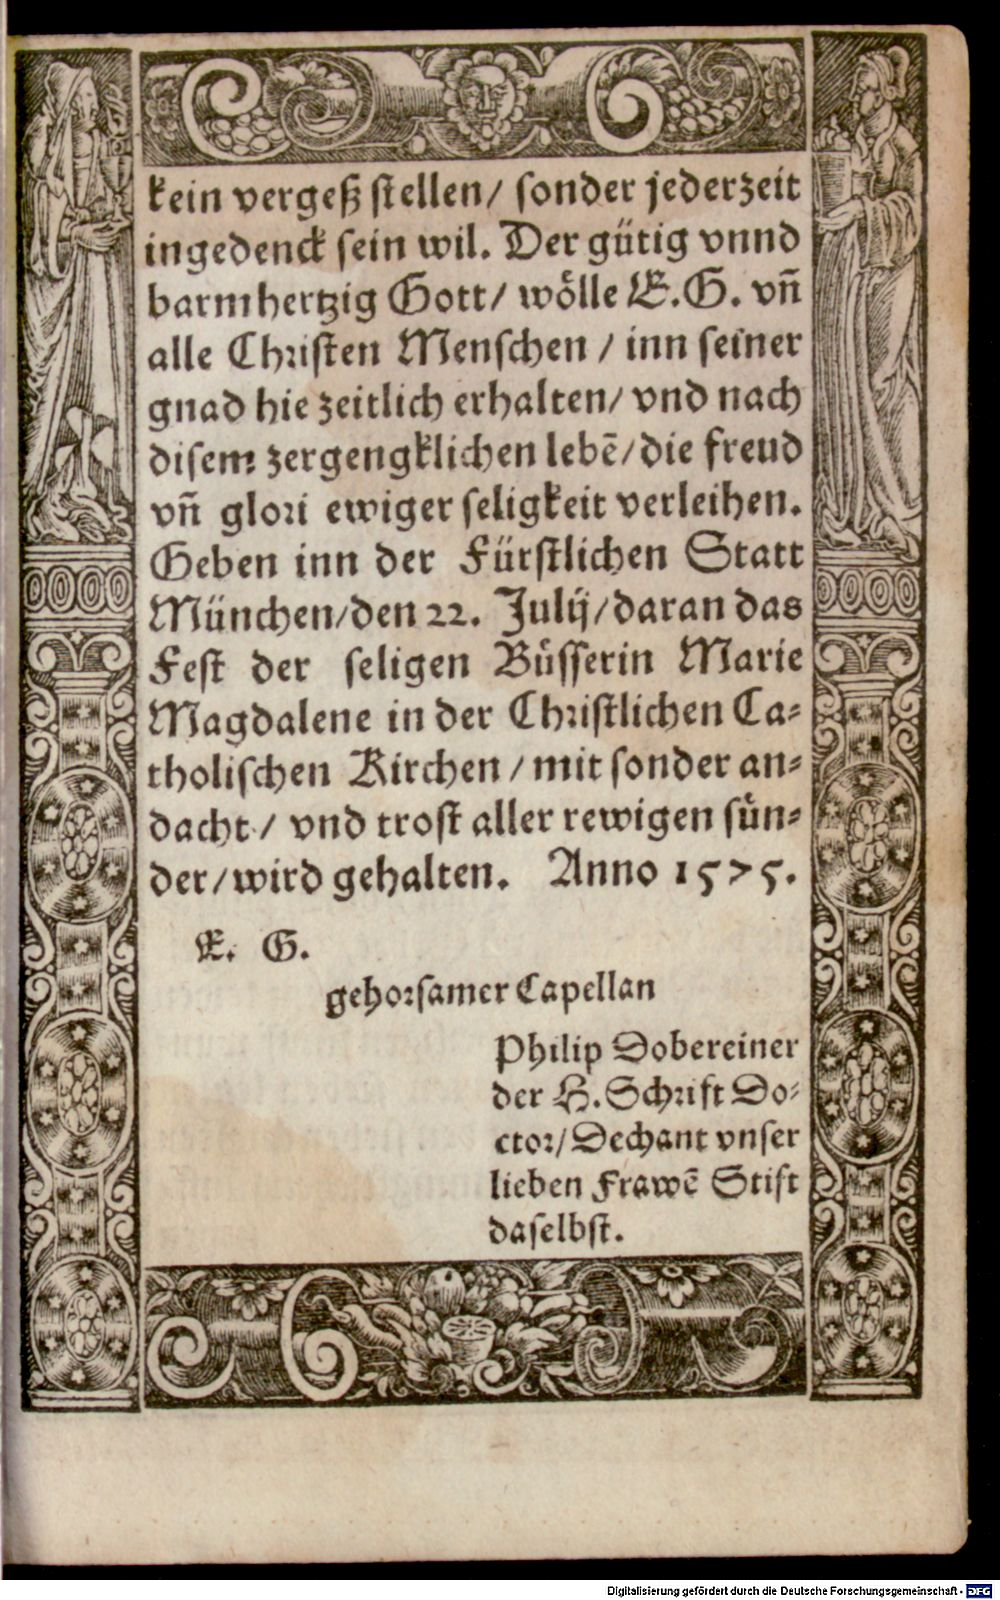 kein vergeß stellen/ sonder jederzeit
ingedenck sein wil. Der gütig vnnd
barmhertzig Gott/ wölle E.G. vñ
alle Christen Menschen / inn seiner
gnad hie zeitlich erhalten/ vnd nach
disem zergengklichen lebẽ/die freud
vñ glori ewiger seligkeit verleihen.
Geben inn der Fürstlichen Statt
München/den 22. Julij/daran das
Fest der seligen Büsserin Marie
Magdalene in der Christlichen Ca-
tholischen Kirchen / mit sonder an-
dacht / vnd trost aller rewigen sün-
der/wird gehalten. Anno 1575.
E. G.
gehorsamer Capellan
Philip Dobereiner
der H. Schrift Do-
ctor/Dechant vnser
lieben Frawẽ Stift
daselbst.
Digitalisierung gefördert durch die Deutsche Forschungsgemeinschaft - DFG